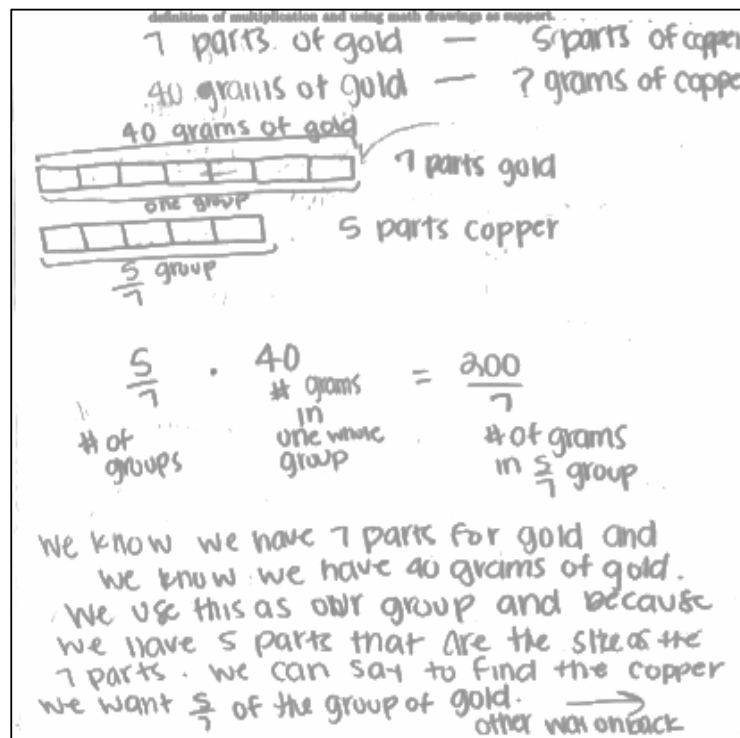 definition of multiplication and using math drawings as support.
7 parts of gold — 5 parts of copper
40 grams of gold — ? grams of coppe
40 grams of gold
7 parts gold
one group
5 parts copper
5/7 group
5/7 · 40 = 200/7
# of groups
# grams in one whole group
# of grams in 5/7 group
we know we have 7 parts for gold and
we know we have 40 grams of gold.
We use this as our group and because
we have 5 parts that are the size of the
7 parts. we can say to find the copper
we want 5/7 of the group of gold. →
other way on back